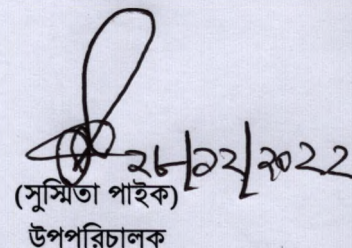 ২৮/১২/২০২২
(সুস্মিতা পাইক)
উপপরিচালক